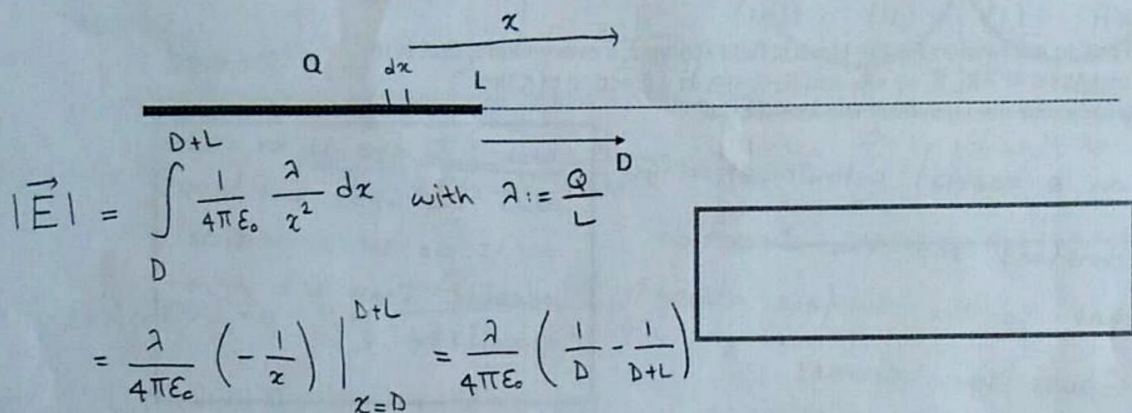 x
Q dx L
D
|E⃗| = ∫_D^{D+L} 1/(4πε₀) λ/x² dx with λ := Q/L
= λ/(4πε₀) (-1/x) |_{x=D}^{D+L} = λ/(4πε₀) (1/D - 1/(D+L))